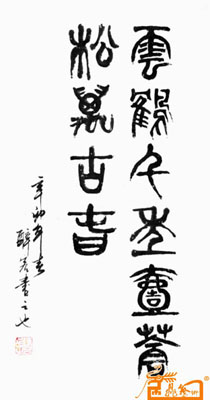 雲鶴千年壽蒼
松萬古春
辛卯年春